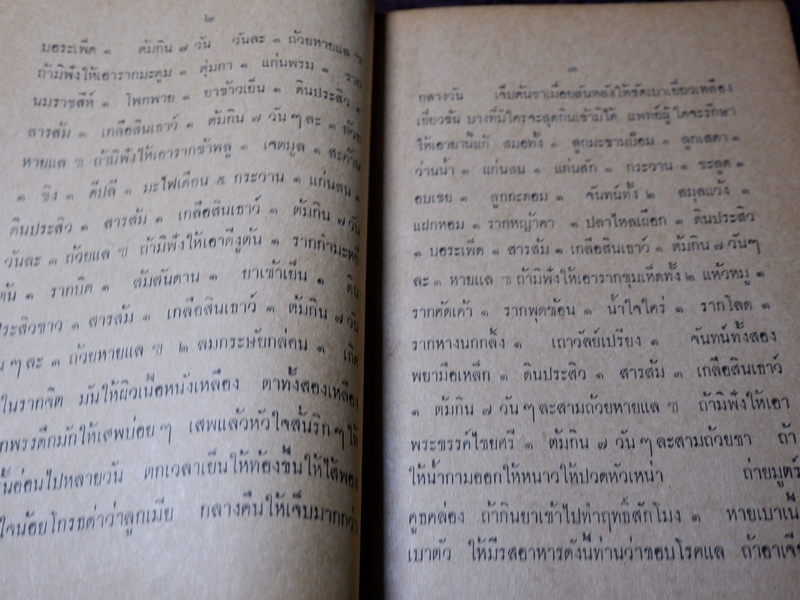 ๒
บอระเพ็ด ๑ ต้มกิน ๗ วัน วันละ ๓ ถ้วยหายแล ฯ
ถ้ามิฟังให้เอารากมะตูม ๑ ตุ่มกา ๑ แก่นพรม ๑ ราก
นมราชสีห์ ๑ โพกพาย ๑ ยาข้าวเย็น ๑ ดินประสิว ๑
สารส้ม ๑ เกลือสินเธาว์ ๑ ต้มกิน ๗ วันๆ ละ ๓ ถ้วย
หายแล ฯ ถ้ามิฟังให้เอารากช้าพลู ๑ เจตมูล ๑ สะค้าน
๑ ขิง ๑ ดีปลี ๑ มะไฟเดือน ๕ กระวาน ๑ แก่นสน ๑
ดินประสิว ๑ สารส้ม ๑ เกลือสินเธาว์ ๑ ต้มกิน ๗ วัน
วันละ ๓ ถ้วยแล ฯ ถ้ามิฟังให้เอาดีงูต้น ๑ รากกำมะหยี่
ต้น ๑ รากบิด ๑ ส้มสันดาน ๑ ยาเข้าเย็น ๑ ดิน
ประสิวขาว ๑ สารส้ม ๑ เกลือสินเธาว์ ๑ ต้มกิน ๗ วัน
ๆ ละ ๓ ถ้วยหายแล ฯ ๒ ลมกระษัยกล่อน ๑ เกิด
ในรากจิต มันให้ผิวเนื้อหนังเหลือง ตาทั้งสองเหลือง
พรรดึกมักให้เสพบ่อยๆ เสพแล้วหัวใจสั้นริกๆ ให้
อ่อนไปหลายวัน ตกเวลาเย็นให้ท้องขึ้นให้ไส้พอง
ใจน้อยโกรธด่าว่าลูกเมีย กลางคืนให้เจ็บมากกว่า
๓
กลางวัน เจ็บต้นขาเมื่อยสันหลังให้ขัดเบาเยี่ยวเหลือง
เยี่ยวข้น บางทีมิใคร่จะลุกกินเข้ามิได้ แพทย์ผู้ใดจะรักษา
ให้เอายานี้แก้ สมอทั้ง ๑ ลูกมะขามป้อม ๑ ลูกเสดา ๑
ว่านน้ำ ๑ แก่นสน ๑ แก่นสัก ๑ กระวาน ๑ ชะลูด ๑
อบเชย ๑ ลูกกะดอม ๑ จันทน์ทั้ง ๒ สมุลแว้ง ๑
แฝกหอม ๑ รากหญ้าคา ๑ ปลาไหลเผือก ๑ ดินประสิว
๑ บอระเพ็ด ๑ สารส้ม ๑ เกลือสินเธาว์ ๑ ต้มกิน ๗ วันๆ
ละ ๓ หายแล ฯ ถ้ามิฟังให้เอารากชุมเห็ดทั้ง ๒ แห้วหมู ๑
รากคัดเค้า ๑ รากพุดซ้อน ๑ น้ำใจใคร่ ๑ รากโลด ๑
รากหางนกกลิ้ง ๑ เถาวัลย์เปรียง ๑ จันทน์ทั้งสอง
พยามือเหล็ก ๑ ดินประสิว ๑ สารส้ม ๓ เกลือสินเธาว์
๑ ต้มกิน ๗ วันๆ ละสามถ้วยหายแล ฯ ถ้ามิฟังให้เอา
พระขรรค์ไชยศรี ๑ ต้มกิน ๗ วันๆ ละสามถ้วยชา ถ้า
ให้น้ำกามออกให้หนาวให้ปวดหัวเหน่า ถ่ายมูตร์
คูธคล่อง ถ้ากินยาเข้าไปทำฤทธิ์สักโมง ๑ หายเบาเป็น
เบาตัว ให้มีรสอาหารดังนี้ท่านว่าชอบโรคแล ถ้าอาเจียร